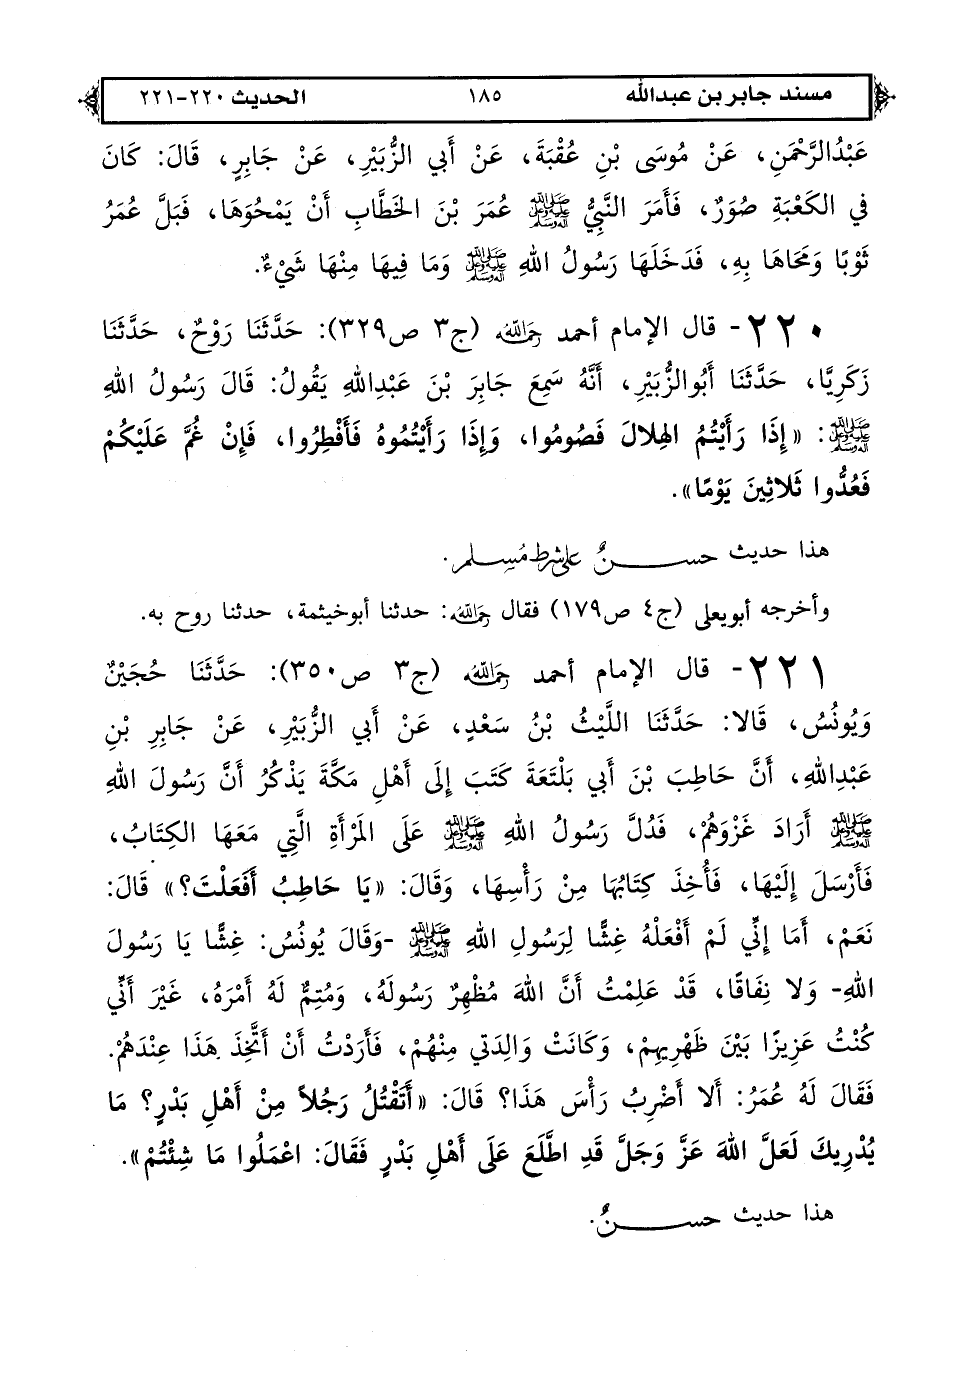 مسند جابر بن عبدالله ١٨٥ الحديث ٢٢٠-٢٢١
عَبْدُالرَّحْمَنِ، عَنْ مُوسَى بْنِ عُقْبَةَ، عَنْ أَبي الزُّبَيْرِ، عَنْ جَابِرٍ، قَالَ: كَانَ
في الكَعْبَةِ صُوَرٌ، فَأَمَرَ النَّبِيُّ ﷺ عُمَرَ بْنَ الخَطَّابِ أَنْ يَمْحُوَهَا، فَبَلَّ عُمَرُ
ثَوْبًا وَمَحَاهَا بِهِ، فَدَخَلَهَا رَسُولُ اللهِ ﷺ وَمَا فِيهَا مِنْهَا شَيْءٌ.
٢٢٠- قال الإمام أحمد رحمه الله (ج٣ ص٣٢٩): حَدَّثَنَا رَوْحٌ، حَدَّثَنَا
زَكَرِيَّا، حَدَّثَنَا أَبُوالزُّبَيْرِ، أَنَّهُ سَمِعَ جَابِرَ بْنَ عَبْدِاللهِ يَقُولُ: قَالَ رَسُولُ اللهِ
ﷺ: «إِذَا رَأَيْتُمُ الهِلالَ فَصُومُوا، وَإِذَا رَأَيْتُمُوهُ فَأَفْطِرُوا، فَإِنْ غُمَّ عَلَيْكُمْ
فَعُدُّوا ثَلاثِينَ يَوْمًا».
هذا حديث حسنٌ على شرط مُسلم.
وأخرجه أبويعلى (ج٤ ص١٧٩) فقال رحمه الله: حدثنا أبوخيثمة، حدثنا روح به.
٢٢١- قال الإمام أحمد رحمه الله (ج٣ ص٣٥٠): حَدَّثَنَا حُجَيْنٌ
وَيُونُسُ، قَالا: حَدَّثَنَا اللَّيْثُ بْنُ سَعْدٍ، عَنْ أَبي الزُّبَيْرِ، عَنْ جَابِرِ بْنِ
عَبْدِاللهِ، أَنَّ حَاطِبَ بْنَ أَبي بَلْتَعَةَ كَتَبَ إِلَى أَهْلِ مَكَّةَ يَذْكُرُ أَنَّ رَسُولَ اللهِ
ﷺ أَرَادَ غَزْوَهُمْ، فَدُلَّ رَسُولُ اللهِ ﷺ عَلَى المَرْأَةِ الَّتِي مَعَهَا الكِتَابُ،
فَأَرْسَلَ إِلَيْهَا، فَأُخِذَ كِتَابُهَا مِنْ رَأْسِهَا، وَقَالَ: «يَا حَاطِبُ أَفَعَلْتَ؟» قَالَ:
نَعَمْ، أَمَا إِنِّي لَمْ أَفْعَلْهُ غِشًّا لِرَسُولِ اللهِ ﷺ -وَقَالَ يُونُسُ: غِشًّا يَا رَسُولَ
اللهِ- وَلا نِفَاقًا، قَدْ عَلِمْتُ أَنَّ اللهَ مُظْهِرٌ رَسُولَهُ، وَمُتِمٌّ لَهُ أَمْرَهُ، غَيْرَ أَنِّي
كُنْتُ عَزِيزًا بَيْنَ ظَهْرِيهِمْ، وَكَانَتْ وَالِدَتي مِنْهُمْ، فَأَرَدْتُ أَنْ أَتَّخِذَ هَذَا عِنْدَهُمْ.
فَقَالَ لَهُ عُمَرُ: أَلا أَضْرِبُ رَأْسَ هَذَا؟ قَالَ: «أَتَقْتُلُ رَجُلاً مِنْ أَهْلِ بَدْرٍ؟ مَا
يُدْرِيكَ لَعَلَّ اللهَ عَزَّ وَجَلَّ قَدِ اطَّلَعَ عَلَى أَهْلِ بَدْرٍ فَقَالَ: اعْمَلُوا مَا شِئْتُمْ».
هذا حديث حسنٌ.